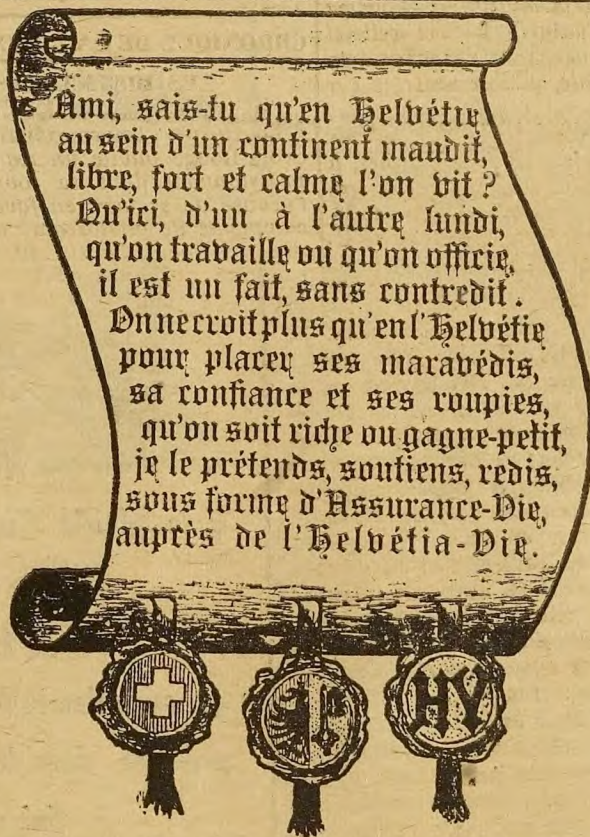 Ami, sais-tu qu'en Helvétie
au sein d'un continent maudit,
libre, fort et calme l'on vit ?
Qu'ici, d'un à l'autre lundi,
qu'on travaille ou qu'on officie,
il est un fait, sans contredit.
On ne croit plus qu'en l'Helvétie
pour placer ses maravédis,
sa confiance et ses roupies,
qu'on soit riche ou gagne-petit,
je le prétends, soutiens, redis,
sous forme d'Assurance-Vie,
auprès de l'Helvétia-Vie.
HV